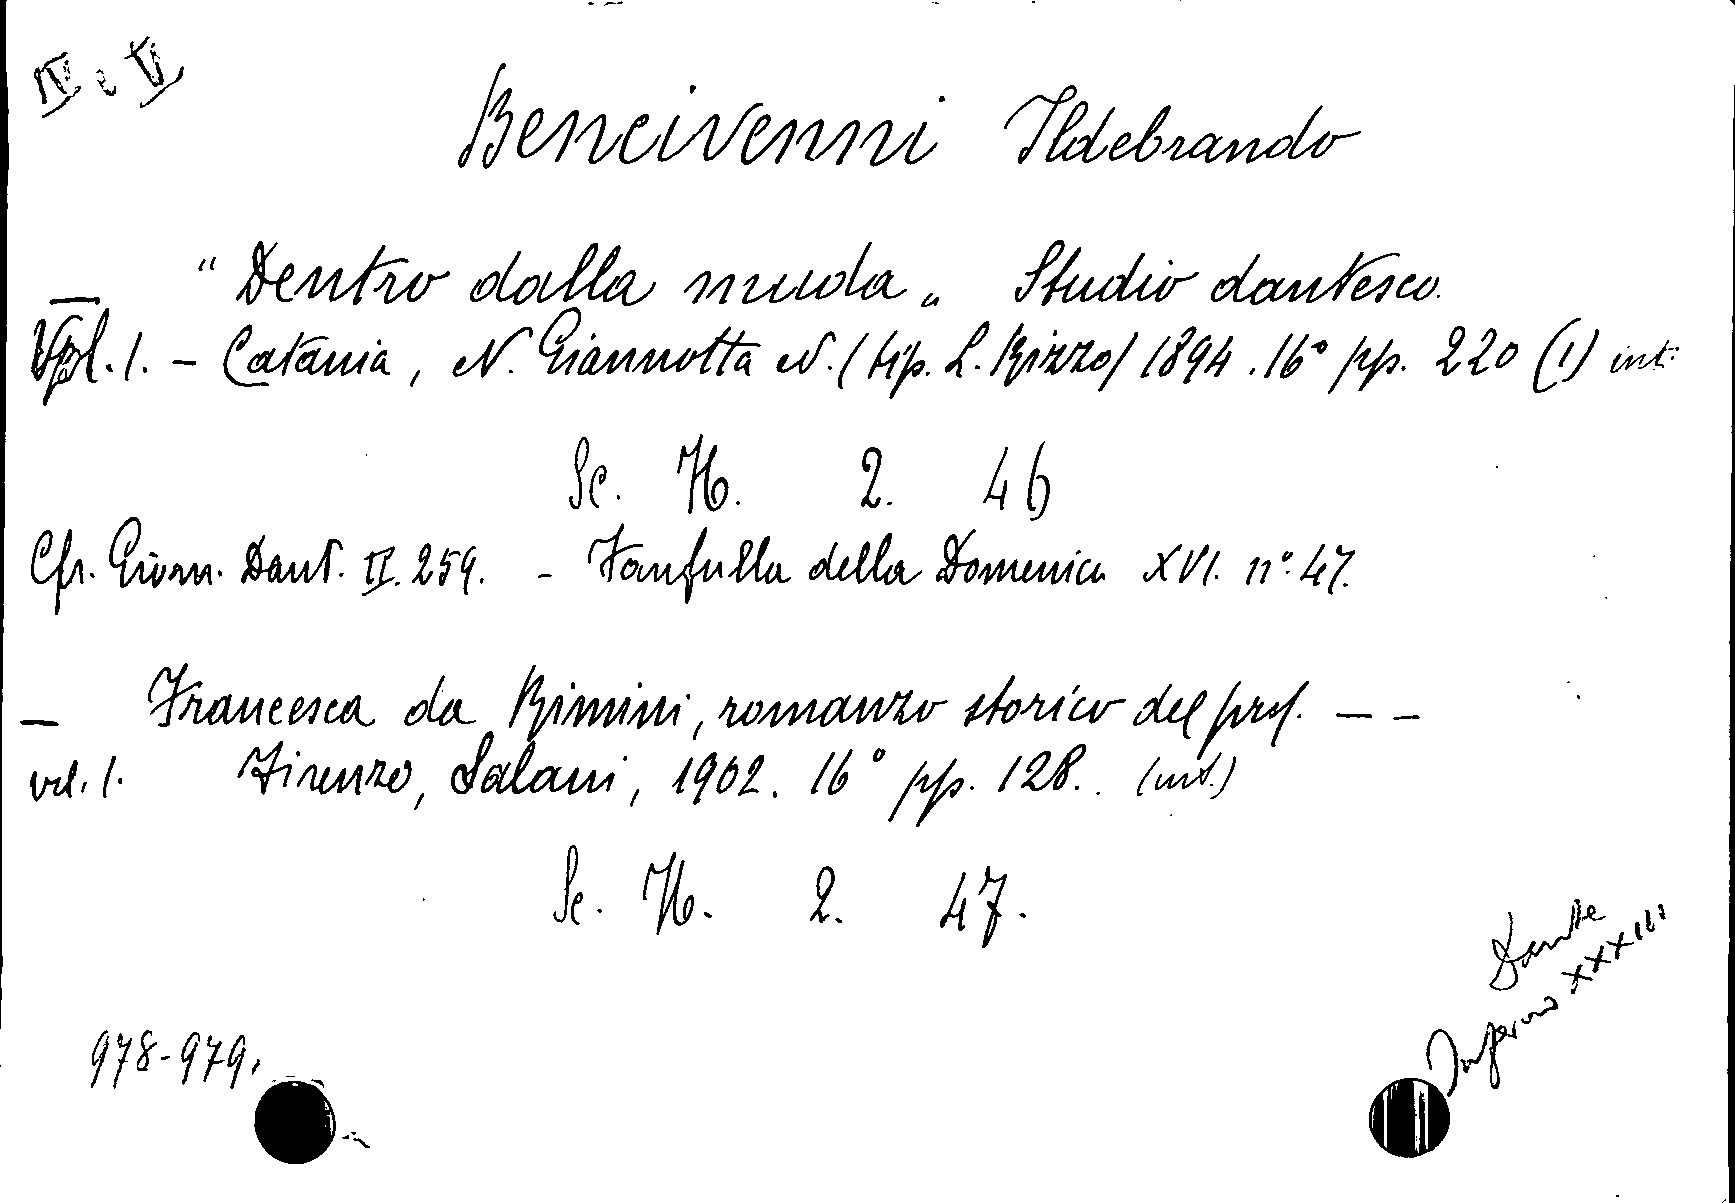 IV e V
Bencivenni Ildebrando
"Dentro dalla muda„ Studio dantesco.
Vol. 1. - Catania, N. Giannotta N. (tip. L. Rizzo) 1894. 16° pp. 220 (1) int:
Sc. H. 2. 46
Cfr. Giorn. Dant. II. 259. - Fanfulla della Domenica XVI. n°. 47.
— Francesca da Rimini, romanzo storico del prof. — —
vol. 1. Firenze, Salani, 1902. 16° pp. 128. (int.)
Sc. H. 2. 47.
Dante
Inferno XXXIII
978-979.